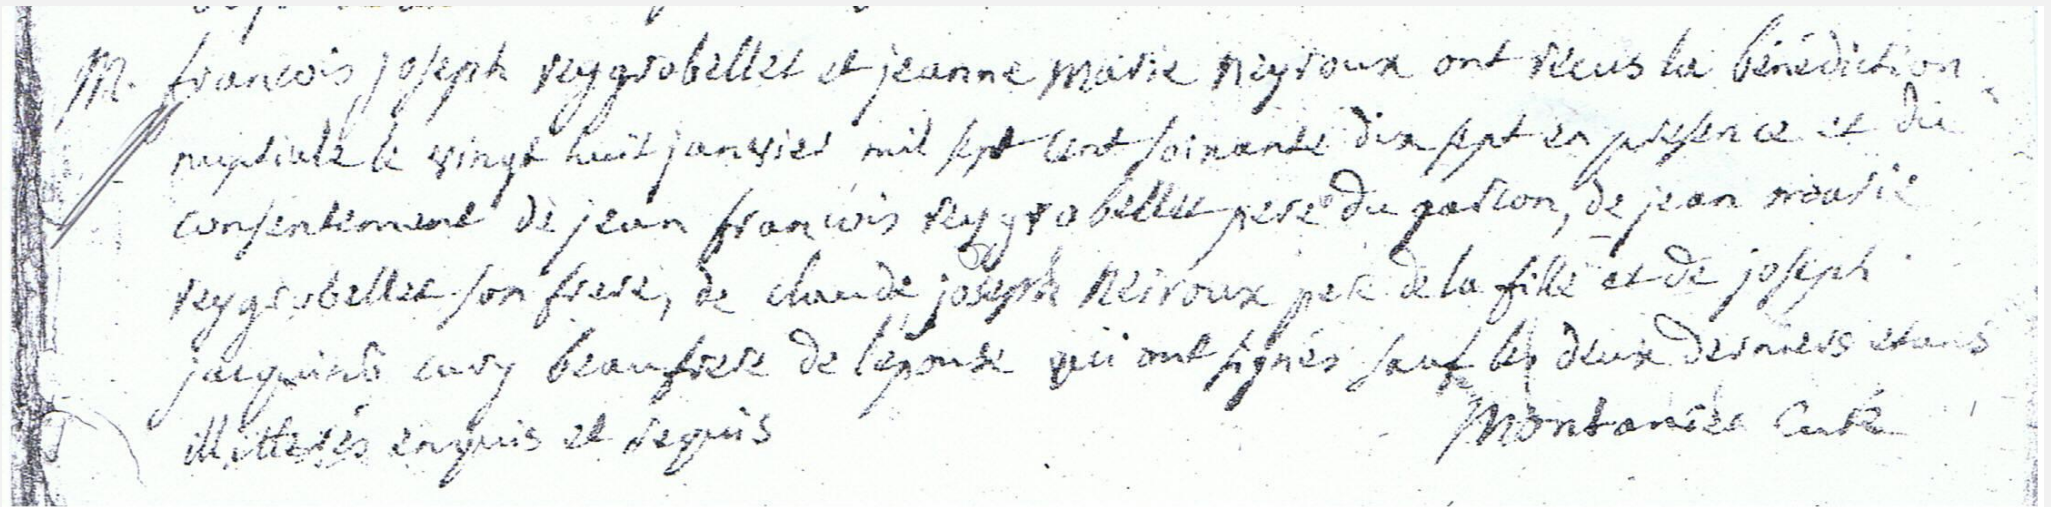 M. francois joseph reygrobellet et jeanne marie neyroux ont recus la bénédiction
nuptiale le vingt huit janvier mil sept cent soixante dix sept en presence et du
consentement de jean francois reygrobellet pere du garcon, de jean marie
reygrobellet son frere, de claude joseph neiroux pere de la fille et de joseph
jacquinod cury beaufrere de lepouse qui ont signés sauf les deux derniers etans
illitterés enquis et requis Montanier Curé